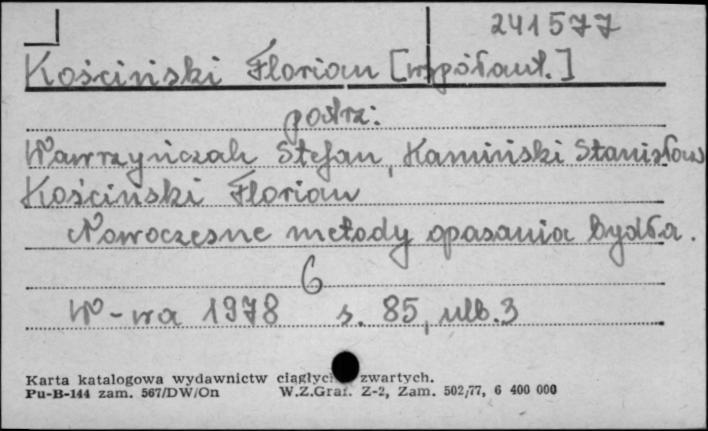 241577
Kościński Florian [współaut.]
patrz:
Wawrzyńczak Stefan, Kamiński Stanisław
Kościński Florian
Nowoczesne metody opasania bydła.
6
W-wa 1978 s. 85, nlb. 3
Karta katalogowa wydawnictw ciągłych zwartych.
Pu-B-144 zam. 567/DW/On W.Z.Graf. Z-2, Zam. 502/77, 6 400 000